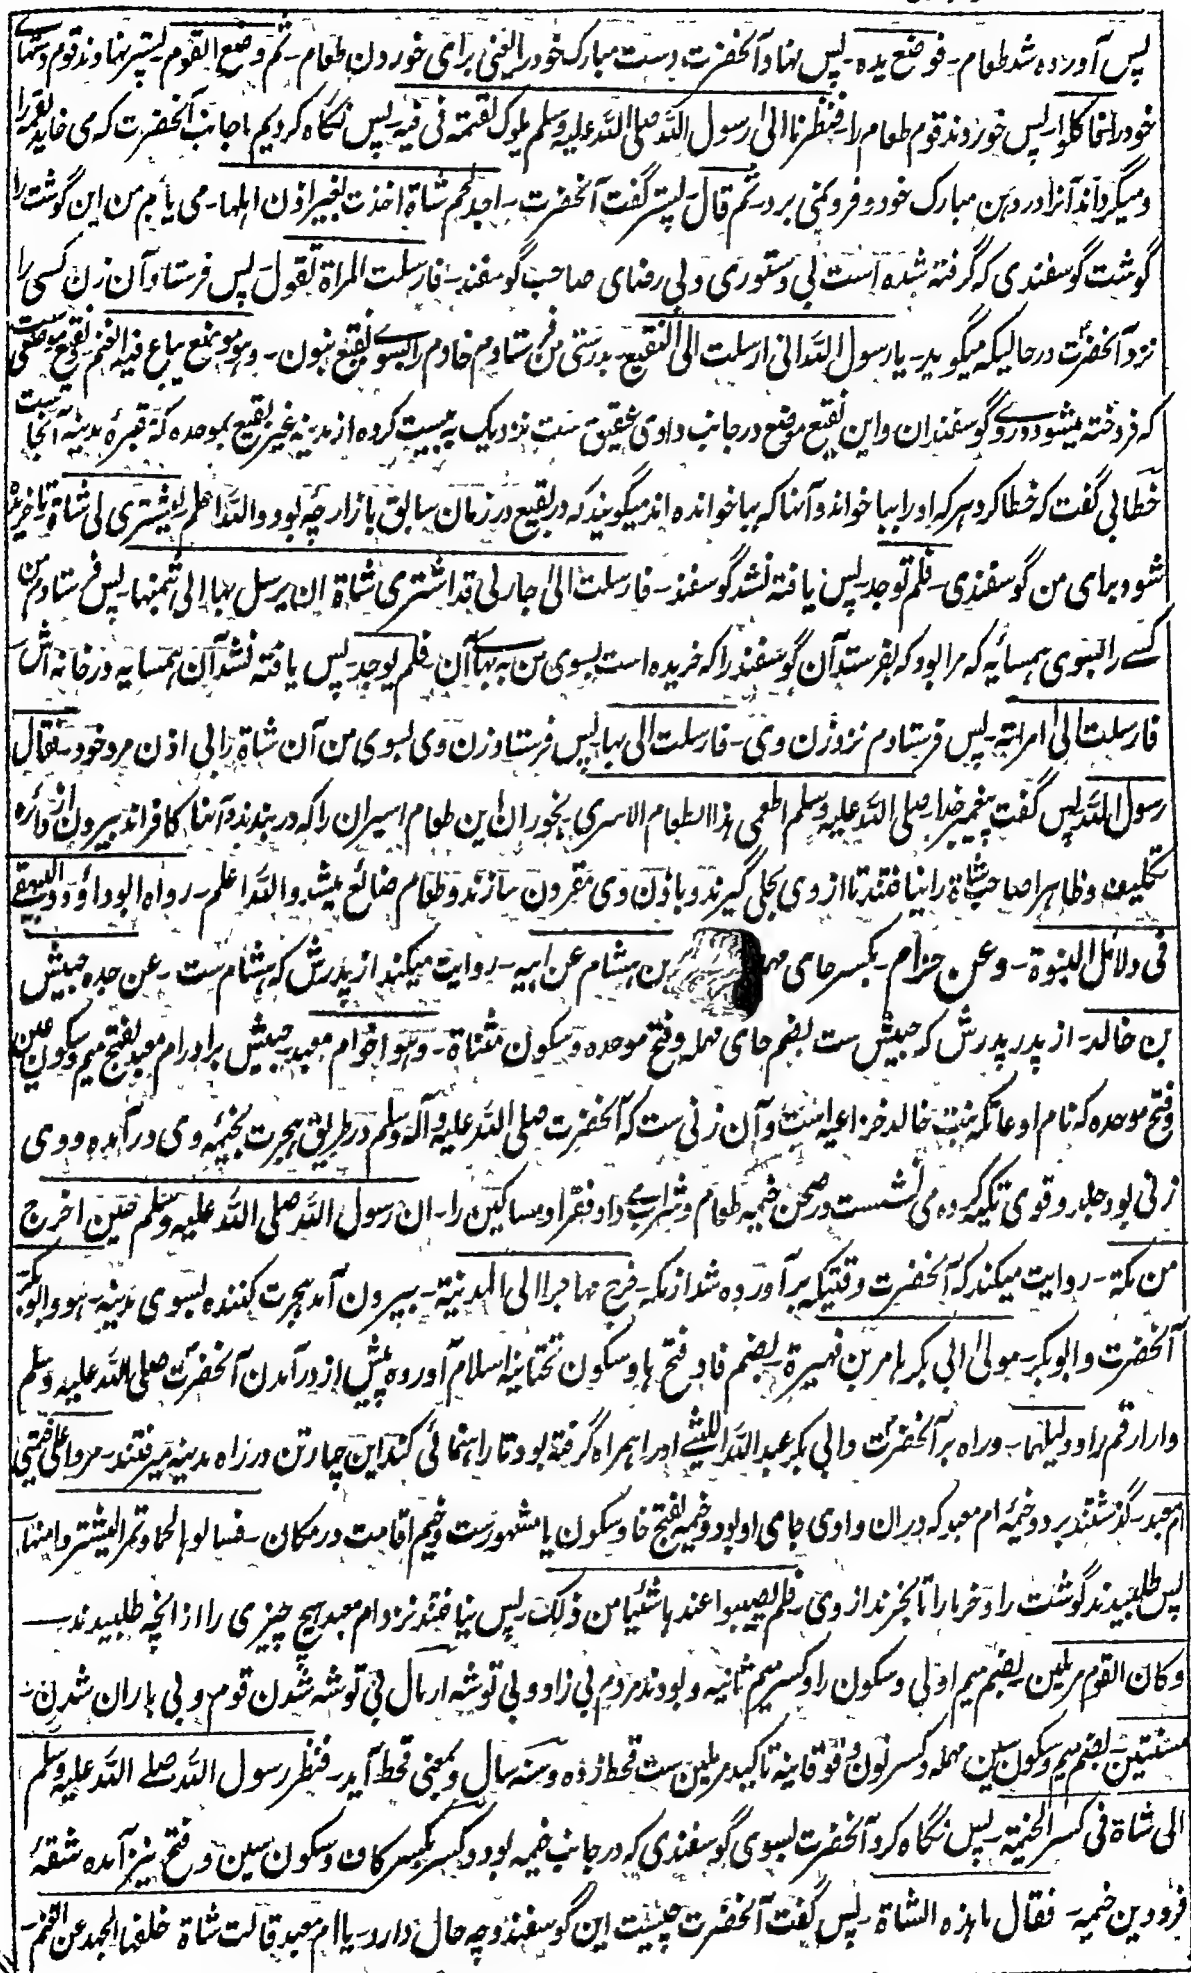 پس آورده شد طعام۔ فوضع یده۔ پس نهاد آنحضرت دست مبارک خود را یعنی برای خوردن طعام۔ ثم وضع القوم۔ پستر نهادند قوم دستهای
خود را فاکلوا۔ پس خوردند قوم طعام را۔ فنظرنا الی رسول الله صلی الله علیه وسلم یلوک لقمته فی فیه۔ پس نگاه کردیم ما جانب آنحضرت که می خاید لقمه را
و میگرداند آنرا در دهن مبارک خود و فرو نمی برد۔ ثم قال۔ پستر گفت آنحضرت۔ اجد لحم شاة اخذت بغیر اذن اهلها۔ می یابم من این گوشت را
گوشت گوسفندی که گرفته شده است بی دستوری و بی رضای صاحب گوسفند۔ فارسلت المراة تقول پس فرستاد آن زن کسی را
نزد آنحضرت در حالیکه میگوید۔ یا رسول الله انی ارسلت الی النقیع۔ بدرستی من فرستادم خادم را بسوے نقیع بنون۔ وهو موضع یباع فیه الغنم۔ نقیع موضعی ست
که فروخته میشود دروے گوسفندان و این نقیع موضع در جانب وادی عقیق ست نزدیک به بیست کروه از مدینه غیر بقیع بموحده که مقبرهٔ مدینه آنجا ست
خطابی گفت که خطا کرد هر که او را ببا خواند و آنها که ببا خوانده اند میگویند که در بقیع در زمان سابق بازارچه بود والله اعلم لیشتری لی شاة تا خریده
شود برای من گوسفندی۔ فلم توجد۔ پس یافته نشد گوسفند۔ فارسلت الی جار لی قد اشتری شاة ان یرسل بها الی بثمنها۔ پس فرستادم من
کسے را بسوی همسایه که مرا بود که بفرستد آن گوسفند را که خریده است بسوی من به بهاے آن۔ فلم یوجد۔ پس یافته نشد آن همسایه در خانه اش
فارسلت الی امراته۔ پس فرستادم نزد زن وی۔ فارسلت الی بها۔ پس فرستاد زن وی بسوی من آن شاة را بی اذن مرد خود۔ فقال
رسول الله پس گفت پیغمبر خدا صلی الله علیه وسلم اطعمی هذا الطعام الاسری۔ بخوران این طعام اسیران را که در بندند و آنها کافرانند بیرون از دائره
تکلیف و ظاهرا صاحب شاة را نیافتند تا از وی بحلی گیرند و باذن وی مقرون سازند و طعام ضائع میشد والله اعلم۔ رواه ابوداؤد والبیهقے
فی دلائل النبوة۔ وعن حزام۔ بکسر حای بن هشام عن ابیه۔ روایت میکند از پدرش که هشام ست۔ عن جده حبیش
بن خالد۔ از پدر پدرش که حبیش ست بضم حای مهمله و فتح موحده و سکون مثناة۔ وهو اخو ام معبد۔ حبیش برادر ام معبد بفتح میم و سکون عین
و فتح موحده که نام او عاتکه بنت خالد خزاعیه است و آن زنی ست که آنحضرت صلی الله علیه وآله وسلم در طریق هجرت بخیمهٔ وی در آمده و وی
زنی بود جلد و قوی تکیه کرده می نشست در صحن خیمه طعام و شرابے داد فقرا و مساکین را۔ ان رسول الله صلی الله علیه وسلم حین اخرج
من مکة۔ روایت میکند که آنحضرت وقتیکه بر آورده شد از مکه۔ خرج مهاجرا الی المدینة۔ بیرون آمد هجرت کننده بسوی مدینه۔ هو وابوبکر
آنحضرت و ابوبکر۔ مولی ابی بکر عامر بن فهیرة۔ بضم فا و فتح ها و سکون تحتانیه اسلام آورده پیش از در آمدن آنحضرت صلی الله علیه وسلم
دار ارقم را و دلیلهما۔ و راه بر آنحضرت و ابی بکر عبد الله اللیثے او را همراه گرفته بود تا راهنمائی کند این چار تن در راه مدینه میرفتند۔ مروا علی خیمتی
ام معبد۔ گذشتند بر دو خیمهٔ ام معبد که دران وادی جای او بود و خیمه بفتح خا و سکون یا مشهورست و خیم اقامت در مکان۔ فسالوها لحما و تمرا لیشتروا منها۔
پس طلبیدند گوشت را و خرما را تا بخرند از وی۔ فلم یصیبوا عندها شیئا من ذلک۔ پس نیافتند نزد ام معبد هیچ چیزی را از آنچه طلبیدند۔
وکان القوم مرملین۔ بضم میم اولی و سکون را و کسر میم ثانیه و بودند مردم بی زاد و بی توشه ارمال بی توشه شدن قوم و بی باران شدن۔
مسنتین۔ بضم میم و سکون سین مهمله و کسر نون و فوقانیه تاکید مرملین ست قحط زده و سنه سال و بمعنی قحط آید۔ فنظر رسول الله صلے الله علیه وسلم
الی شاة فی کسر الخیمة۔ پس نگاه کرد آنحضرت بسوی گوسفندی که در جانب خیمه بود و کسر بکسر کاف و سکون سین و فتح نیز آمده شقهٔ
فرودین خیمه۔ فقال ما هذه الشاة۔ پس گفت آنحضرت چیست این گوسفند و چه حال دارد۔ یا ام معبد قالت شاة خلفها الجهد عن الغنم۔